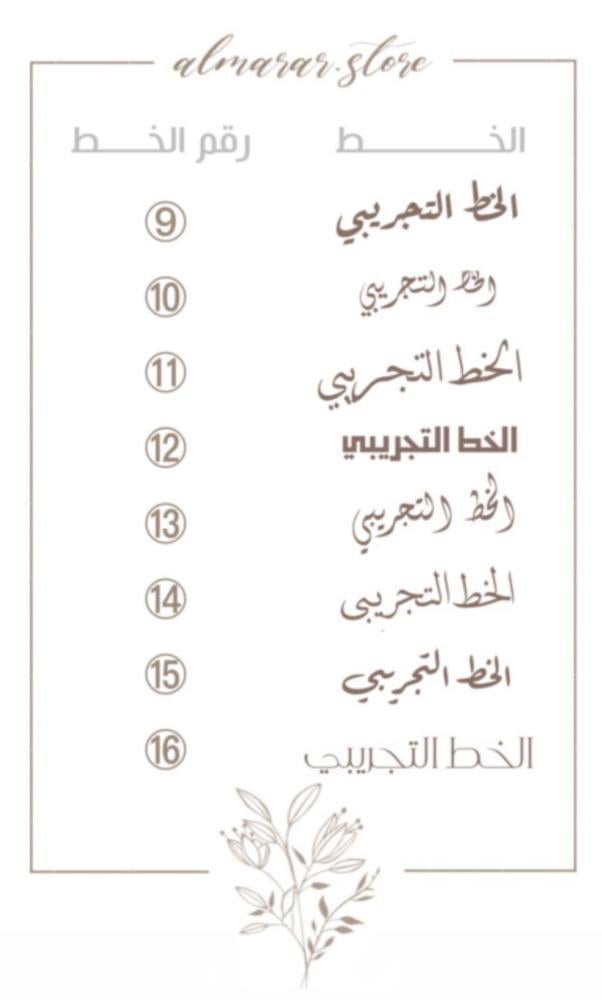 almarar.store
الخـــــــــط رقم الخــــط
الخط التجريبي 9
الخط التجريبي 10
الخط التجريبي 11
الخط التجريبي 12
الخط التجريبي 13
الخط التجريبي 14
الخط التجريبي 15
الخط التجريبي 16